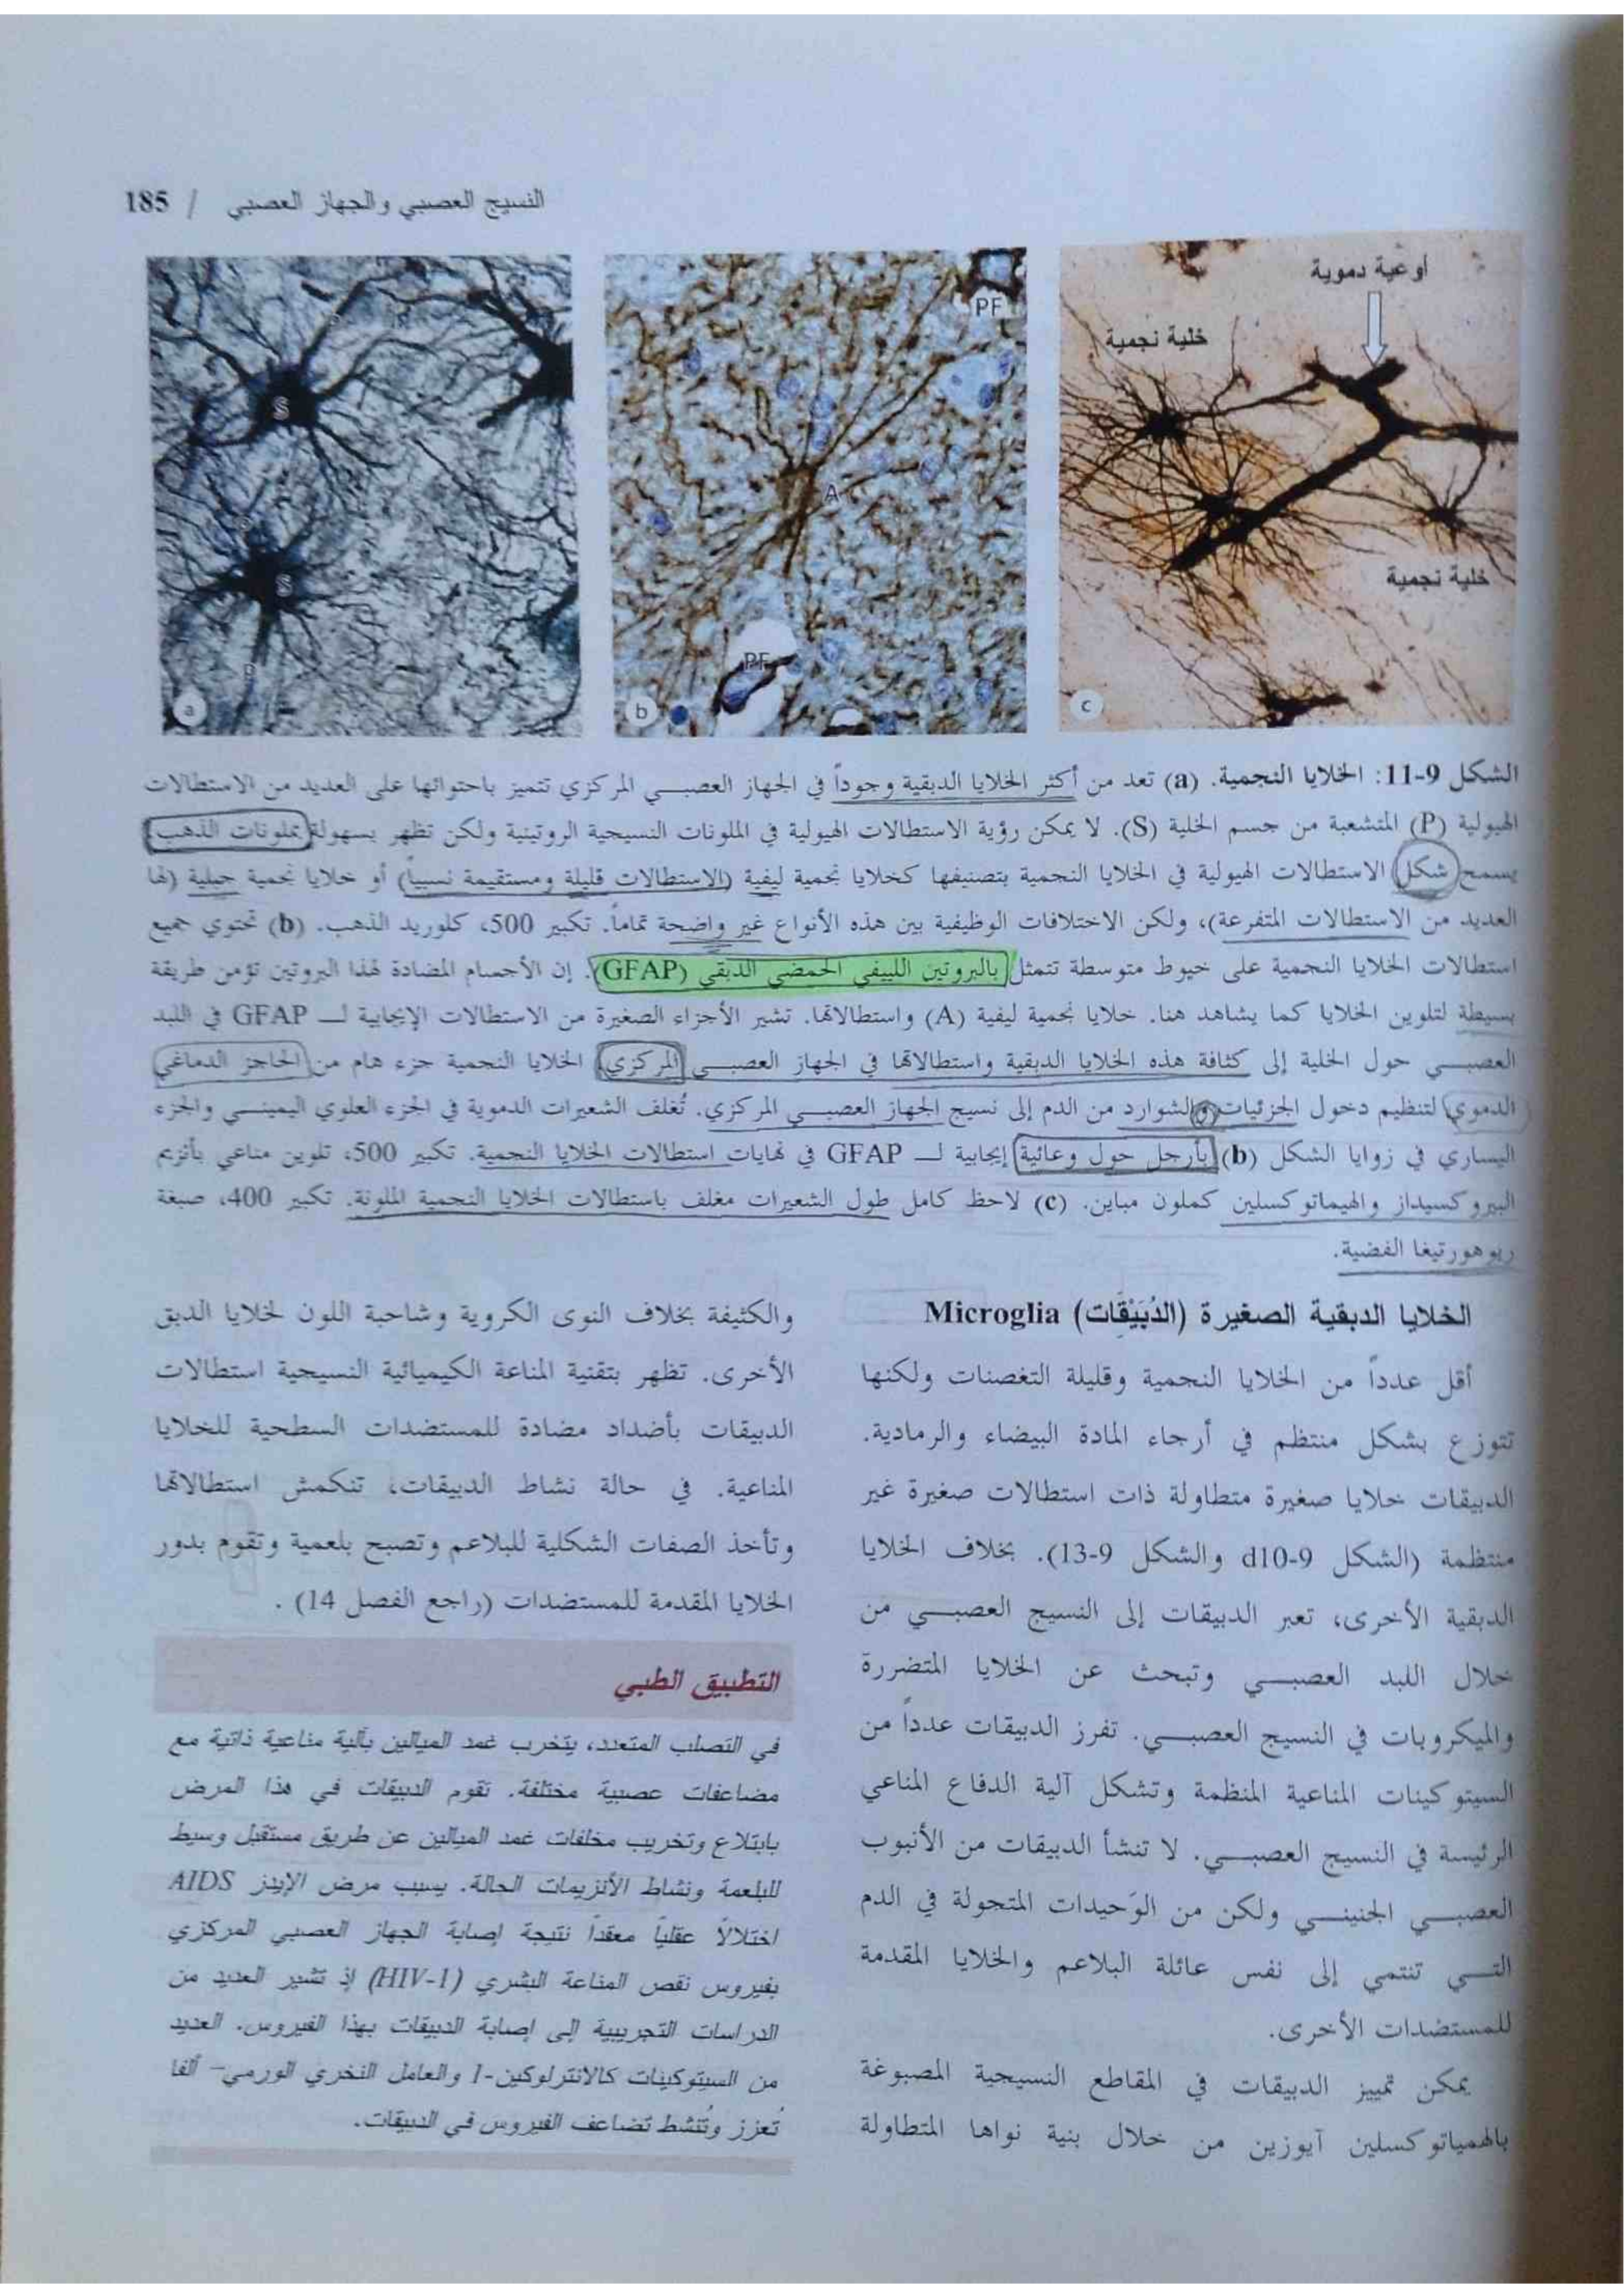 النسيج العصبي والجهاز العصبي / 185
S
S
P
P
a
PF
A
PF
b
أوعية دموية
خلية نجمية
خلية نجمية
c
الشكل 9-11: الخلايا النجمية. (a) تعد من أكثر الخلايا الدبقية وجوداً في الجهاز العصبي المركزي تتميز باحتوائها على العديد من الاستطالات
الهيولية (P) المتشعبة من جسم الخلية (S). لا يمكن رؤية الاستطالات الهيولية في الملونات النسيجية الروتينية ولكن تظهر بسهولة بملونات الذهب.
يسمح شكل الاستطالات الهيولية في الخلايا النجمية بتصنيفها كخلايا نجمية ليفية (الاستطالات قليلة ومستقيمة نسبياً) أو خلايا نجمية جبلية (لها
العديد من الاستطالات المتفرعة)، ولكن الاختلافات الوظيفية بين هذه الأنواع غير واضحة تماماً. تكبير 500، كلوريد الذهب. (b) تحتوي جميع
استطالات الخلايا النجمية على خيوط متوسطة تتمثل بالبروتين الليفي الحمضي الدبقي (GFAP). إن الأجسام المضادة لهذا البروتين تؤمن طريقة
بسيطة لتلوين الخلايا كما يشاهد هنا. خلايا نجمية ليفية (A) واستطالاتها. تشير الأجزاء الصغيرة من الاستطالات الإيجابية لـ GFAP في اللبد
العصبي حول الخلية إلى كثافة هذه الخلايا الدبقية واستطالاتها في الجهاز العصبي المركزي. الخلايا النجمية جزء هام من الحاجز الدماغي
الدموي لتنظيم دخول الجزئيات والشوارد من الدم إلى نسيج الجهاز العصبي المركزي. تُغلف الشعيرات الدموية في الجزء العلوي اليميني والجزء
اليساري في زوايا الشكل (b) بأرجل حول وعائية إيجابية لـ GFAP في نهايات استطالات الخلايا النجمية. تكبير 500، تلوين مناعي بأنزيم
البيروكسيداز والهيماتوكسلين كملون مباين. (c) لاحظ كامل طول الشعيرات مغلف باستطالات الخلايا النجمية الملونة. تكبير 400، صبغة
ريوهورتيغا الفضية.
الخلايا الدبقية الصغيرة (الدُبَيْقَات) Microglia
أقل عدداً من الخلايا النجمية وقليلة التغصنات ولكنها
تتوزع بشكل منتظم في أرجاء المادة البيضاء والرمادية.
الدبيقات خلايا صغيرة متطاولة ذات استطالات صغيرة غير
منتظمة (الشكل 9-d10 والشكل 9-13). بخلاف الخلايا
الدبقية الأخرى، تعبر الدبيقات إلى النسيج العصبي من
خلال اللبد العصبي وتبحث عن الخلايا المتضررة
والميكروبات في النسيج العصبي. تفرز الدبيقات عدداً من
السيتوكينات المناعية المنظمة وتشكل آلية الدفاع المناعي
الرئيسة في النسيج العصبي. لا تنشأ الدبيقات من الأنبوب
العصبي الجنيني ولكن من الوَحيدات المتجولة في الدم
التي تنتمي إلى نفس عائلة البلاعم والخلايا المقدمة
للمستضدات الأخرى.
يمكن تمييز الدبيقات في المقاطع النسيجية المصبوغة
بالهمياتوكسلين آيوزين من خلال بنية نواها المتطاولة
والكثيفة بخلاف النوى الكروية وشاحبة اللون لخلايا الدبق
الأخرى. تظهر بتقنية المناعة الكيميائية النسيجية استطالات
الدبيقات بأضداد مضادة للمستضدات السطحية للخلايا
المناعية. في حالة نشاط الدبيقات، تنكمش استطالاتها
وتأخذ الصفات الشكلية للبلاعم وتصبح بلعمية وتقوم بدور
الخلايا المقدمة للمستضدات (راجع الفصل 14) .
التطبيق الطبي
في التصلب المتعدد، يتخرب غمد الميالين بآلية مناعية ذاتية مع
مضاعفات عصبية مختلفة. تقوم الدبيقات في هذا المرض
بابتلاع وتخريب مخلفات غمد الميالين عن طريق مستقبل وسيط
للبلعمة ونشاط الأنزيمات الحالة. يسبب مرض الإيدز AIDS
اختلالاً عقلياً معقداً نتيجة إصابة الجهاز العصبي المركزي
بفيروس نقص المناعة البشري (HIV-1) إذ تشير العديد من
الدراسات التجريبية إلى إصابة الدبيقات بهذا الفيروس. العديد
من السيتوكينات كالانترلوكين-1 والعامل النخري الورمي– ألفا
تُعزز وتُنشط تضاعف الفيروس في الدبيقات.